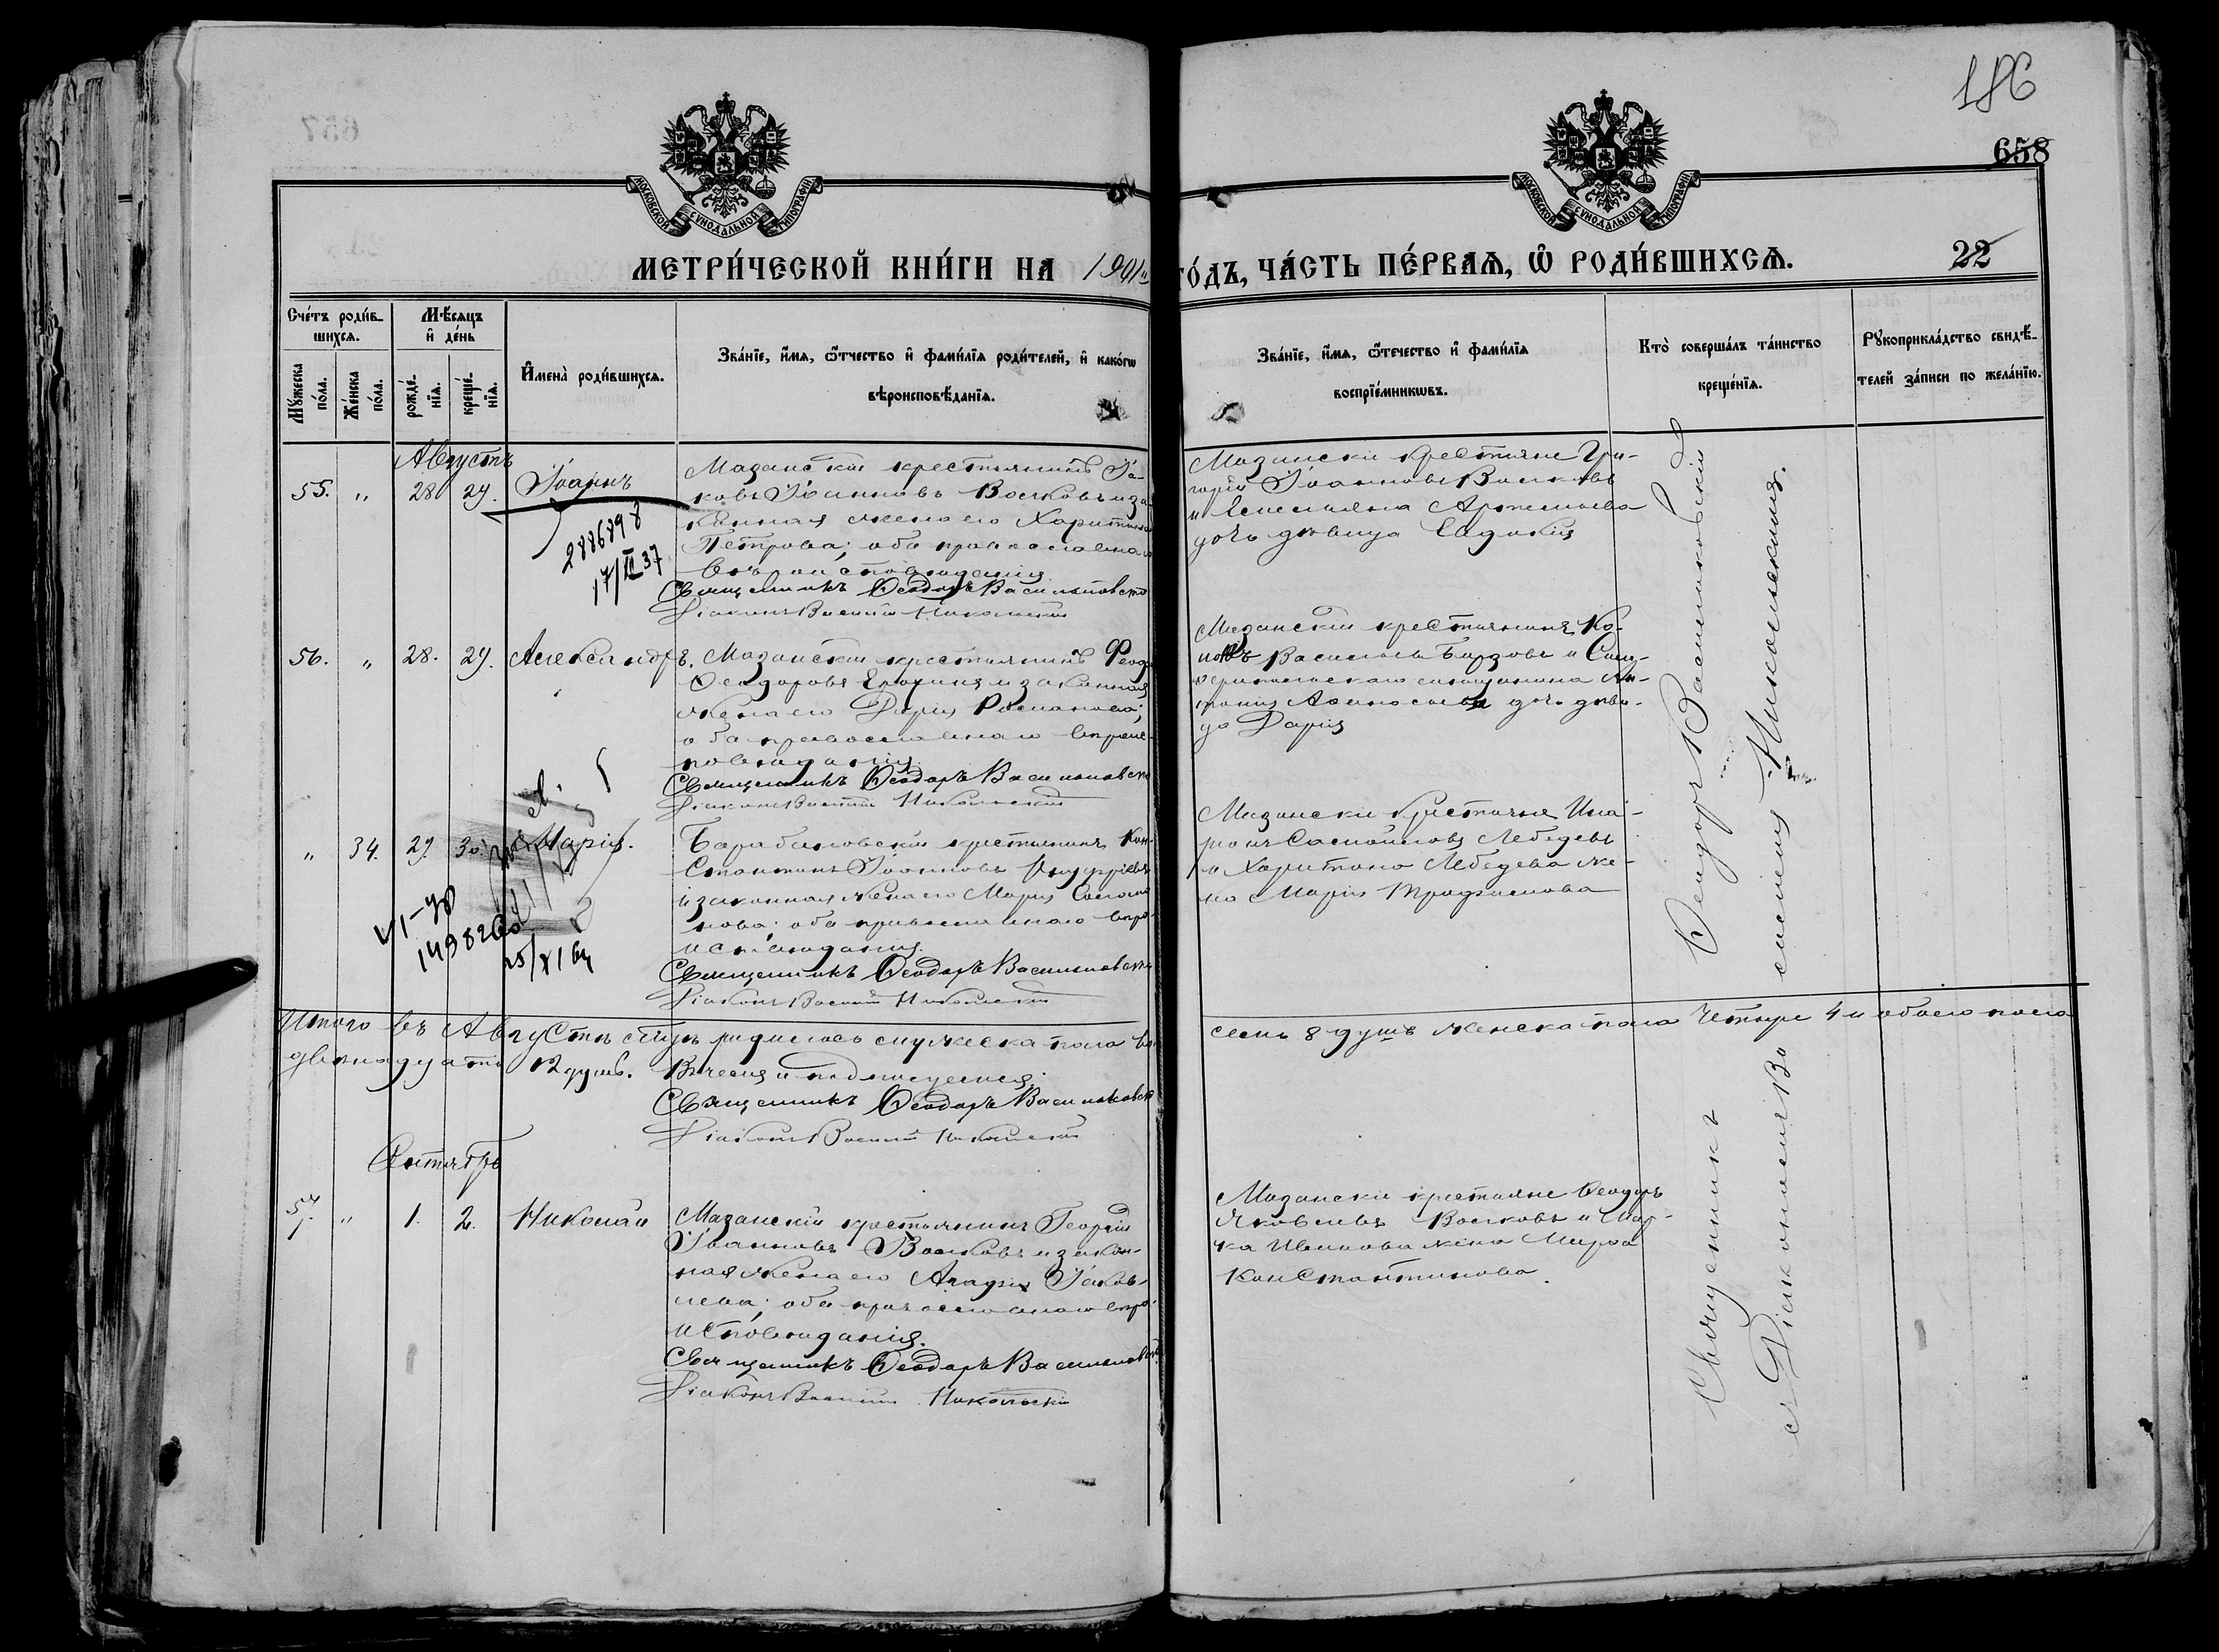 186
658
МОСКОВСКОЙ СѴНОДАЛЬНОЙ ТИПОГРАФІИ
МОСКОВСКОЙ СѴНОДАЛЬНОЙ ТИПОГРАФІИ
МЕТРИ́ЧЕСКОЙ КНИ́ГИ НА 1901й
ГО́ДЪ, ЧА́СТЬ ПЕ́РВАѦ, Ѡ҆ РОДИ́ВШИХСѦ.
22
Сче́тъ роди́в-
шихсѧ.
Мꙋжеска по́ла.
Же́нска по́ла.
Мѣ́сѧцъ
и҆ де́нь
рожде́-
нїѧ.
креще́-
нїѧ.
И҆мена̀ роди́вшихсѧ.
Зва́нїе, и҆́мѧ, ѻ҆́тчество и҆ фами́лїѧ роди́телей, и҆ како́гѡ
вѣроисповѣ́данїѧ.
Зва́нїе, и҆́мѧ, ѻ҆́течество и҆ фами́лїѧ
воспрїе́мникѡвъ.
Кто̀ соверша́лъ та́инство
креще́нїѧ.
Рꙋкоприкла́дство свидѣ́-
телей за́писи по жела́нїю.
Августъ
55. " 28 29. Іоаннъ
2886898
17/II 37
Мазанскій крестьянинъ Іа-
ковъ Іоанновъ Волковъ и за
конная жена его Харитина
Петрова; оба православнаго
вѣроисповѣданія.
Священникъ Ѳеодоръ Васильковск
Діаконъ Василій Никольскій
Мазанскіе крестьяне Гри-
горій Іоанновъ Волковъ
и Емельяна Артемьева
дочь дѣвица Евдокія
56. " 28. 29. Александръ.
Мазанскій крестьянинъ Ѳеод
Ѳеодоровъ и законная
жена его Дарія Романова;
оба православнаго вѣроис-
повѣданія.
Священникъ Ѳеодоръ Васильковск
Діаконъ Василій Никольскій
Мазанскій крестьянинъ
Васильевъ Борзовъ и
мѣщанина Ан-
тонія дочь дѣви-
ца Дарія
" 34. 29. 30. Марія.
VI-УР
1498260
25/XI 64
Барабановскій крестьянинъ Кон-
стантинъ Іоанновъ
и законная жена его Марія
нова; оба православнаго вѣро-
исповѣданія.
Священникъ Ѳеодоръ Васильковск
Діаконъ Василій Никольскій
Мазанскіе крестьяне Ила-
ріонъ Самойловъ Лебедевъ
и Харитона Лебедева же-
на Марія Трофимова
Итого въ Августѣ м-цѣ родилось мужеска пола во
семь 8 душъ женска пола четыре 4 и обоего пола
двѣнадцать 12 душъ. Въ чемъ и подписуемся:
Священникъ Ѳеодоръ Васильковск
Діаконъ Василій Никольскій
Сентябрь
57. " 1. 2. Николай
Мазанскій крестьянинъ Георгій
Іоанновъ Волковъ и закон-
ная жена его Агафія Іаков-
лева; оба православнаго вѣро-
исповѣданія.
Священникъ Ѳеодоръ Васильковск
Діаконъ Василій Никольскій
Мазанскіе крестьяне Ѳеодоръ
Яковлевъ Волковъ и Мар-
ка Иванова жена Марѳа
Константинова.
Священникъ Ѳеодоръ Васильковскій
съ Діакономъ Василіемъ Никольскимъ.